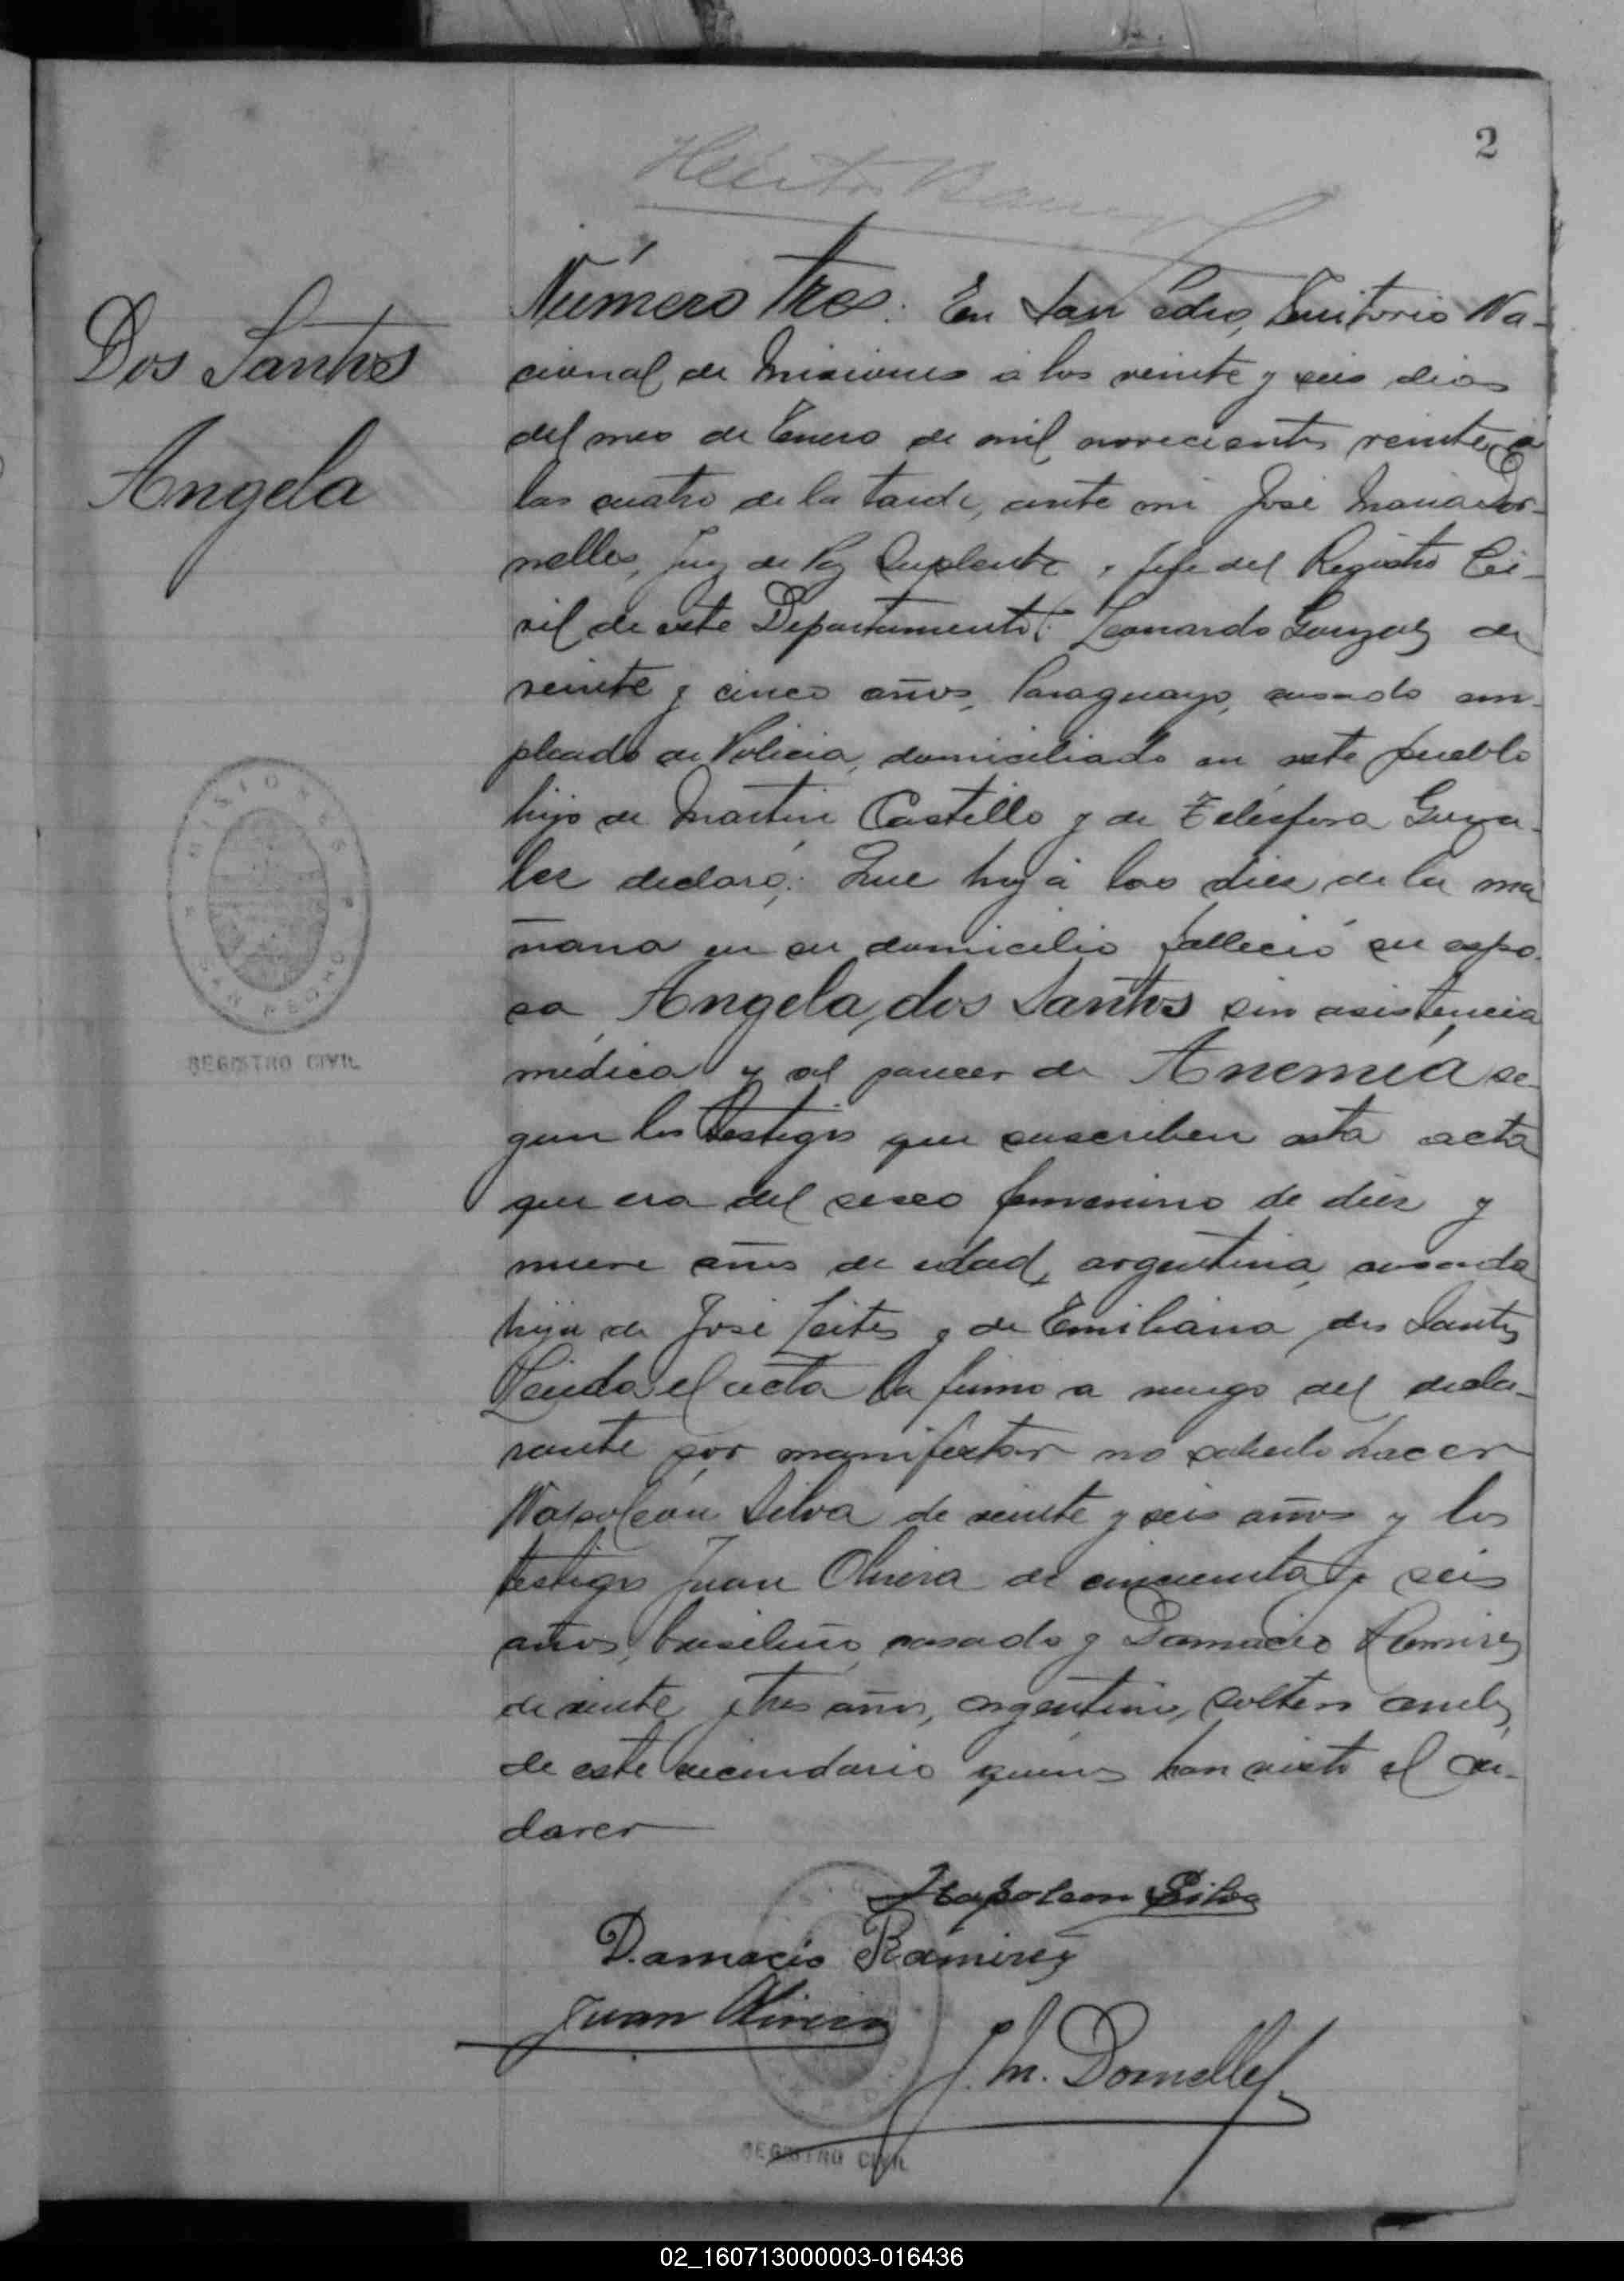 2
Dos Santos
Angela
MISIONES
SAN PEDRO
REGISTRO CIVIL
Número Tres: En San Pedro, Territorio Na-
cional de Misiones a los veinte y seis dias
del mes de Enero de mil novecientos veinte, a
las cuatro de la tarde, ante mi José Maria Dor-
nelles, Juez de Paz Suplente, Jefe del Registro Ci-
vil de este Departamento: Leonardo Gonzalez de
veinte y cinco años, Paraguayo, casado em-
pleado de Policia, domiciliado en este pueblo
hijo de Martin Castillo y de Telésfora Gonza-
lez declaró: Que hoy á las diez de la ma
ñana en su domicilio falleció su espo-
sa Angela dos Santos sin asistencia
médica y al parecer de Anemia se-
gun los testigos que suscriben esta acta
que era del sexo femenino de diez y
nueve años de edad, argentina, casada
hija de José Leites y de Emiliana dos Santos
Leida el acta la firmo a ruego del decla-
rante por manifestar no saberlo hacer
Napoleón Silva de veinte y seis años y los
testigos Juan Olivera de cincuenta y seis
años, brasileño, casado y Damacio Ramirez
de veinte y tres años, argentino, soltero ambos
de este vecindario quienes han visto el ca-
daver
Napoleon Silva
Damacio Ramirez
Juan Olivera
J. M. Dornelles
REGISTRO CIVIL
02_160713000003-016436